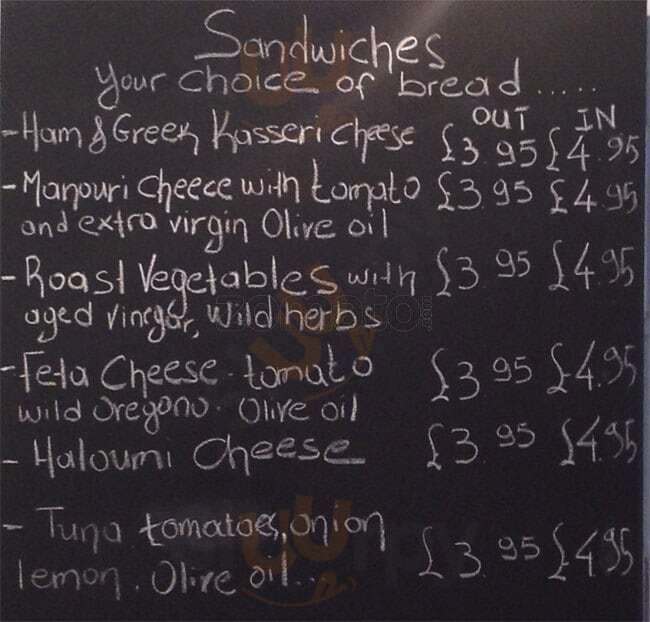 Sandwiches
Your choice of bread .....
OUT IN
- Ham & Greek Kasseri cheese £3.95 £4.95
- Manouri cheece with tomato £3.95 £4.95
and extra virgin Olive oil
- Roast Vegetables with £3.95 £4.95
aged vinegar, wild herbs
- Feta Cheese. tomato £3.95 £4.95
wild oregano. Olive oil
- Haloumi Cheese £3.95 £4.95
- Tuna tomatoes, onion
lemon. Olive oil... £3.95 £4.95